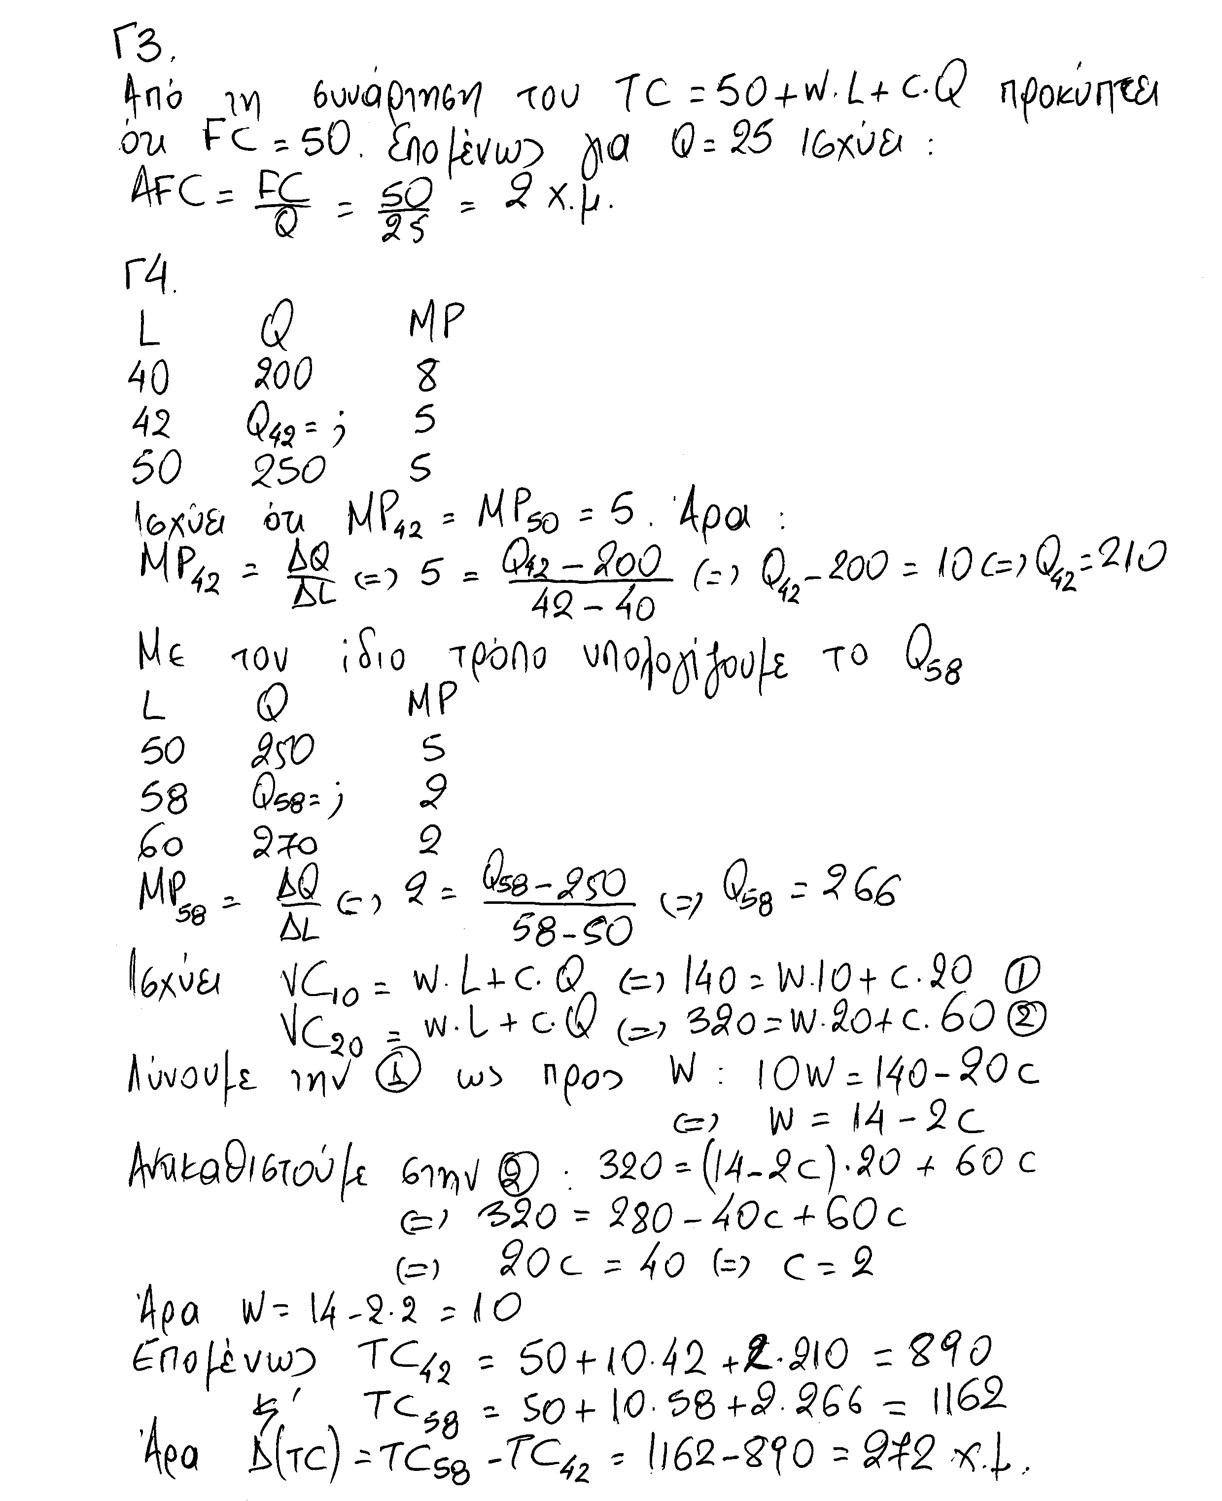 Γ3.
Από τη συνάρτηση του TC = 50 + w.L + c.Q προκύπτει
ότι FC = 50. Επομένως για Q = 25 ισχύει :
AFC = FC/Q = 50/25 = 2 χ.μ.
Γ4.
L Q MP
40 200 8
42 Q42 = ; 5
50 250 5
Ισχύει ότι MP42 = MP50 = 5. Άρα :
MP42 = ΔQ/ΔL (=) 5 = Q42 - 200/42 - 40 (=) Q42 - 200 = 10 (=) Q42 = 210
Με τον ίδιο τρόπο υπολογίζουμε το Q58
L Q MP
50 250 5
58 Q58 = ; 2
60 270 2
MP58 = ΔQ/ΔL (=) 2 = Q58 - 250/58 - 50 (=) Q58 = 266
Ισχύει VC10 = w.L + c.Q (=) 140 = w.10 + c.20 ①
VC20 = w.L + c.Q (=) 320 = w.20 + c.60 ②
Λύνουμε την ① ως προς w : 10w = 140 - 20c
(=) w = 14 - 2c
Αντικαθιστούμε στην ② : 320 = (14 - 2c).20 + 60c
(=) 320 = 280 - 40c + 60c
(=) 20c = 40 (=) c = 2
Άρα w = 14 - 2.2 = 10
Επομένως TC42 = 50 + 10.42 + 2.210 = 890
κ' TC58 = 50 + 10.58 + 2.266 = 1162
Άρα Δ(TC) = TC58 - TC42 = 1162 - 890 = 272 χ.μ.